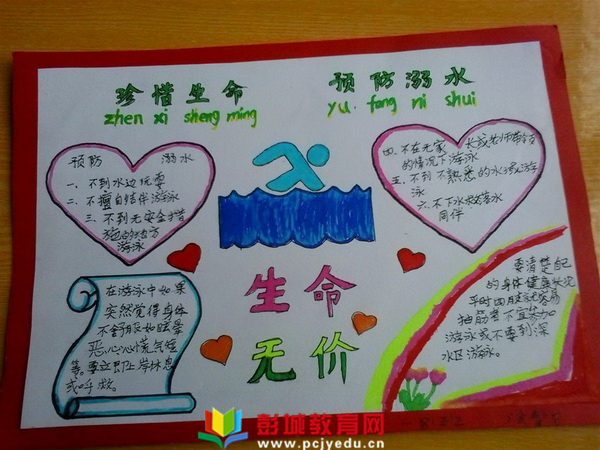 珍惜生命
zhen xi sheng ming
预防溺水
yu fang ni shui
预防 溺水
一、不到水边玩耍
二、不擅自结伴游泳
三、不到无安全措
施的地方
游泳
四、不在无家长或老师带领
的情况下游泳
五、不到不熟悉的水域游
泳
六、不下水救落水
同伴
生命
无价
在游泳中如果
突然觉得身体
不舒服如眩晕
恶心心慌气短
等。要立即上岸休息
或呼救。
要清楚自己
的身体健康状况
平时四肢就容易
抽筋者不宜参加
游泳或不要到深
水区游泳。
彭城教育网
www.pcjyedu.cn